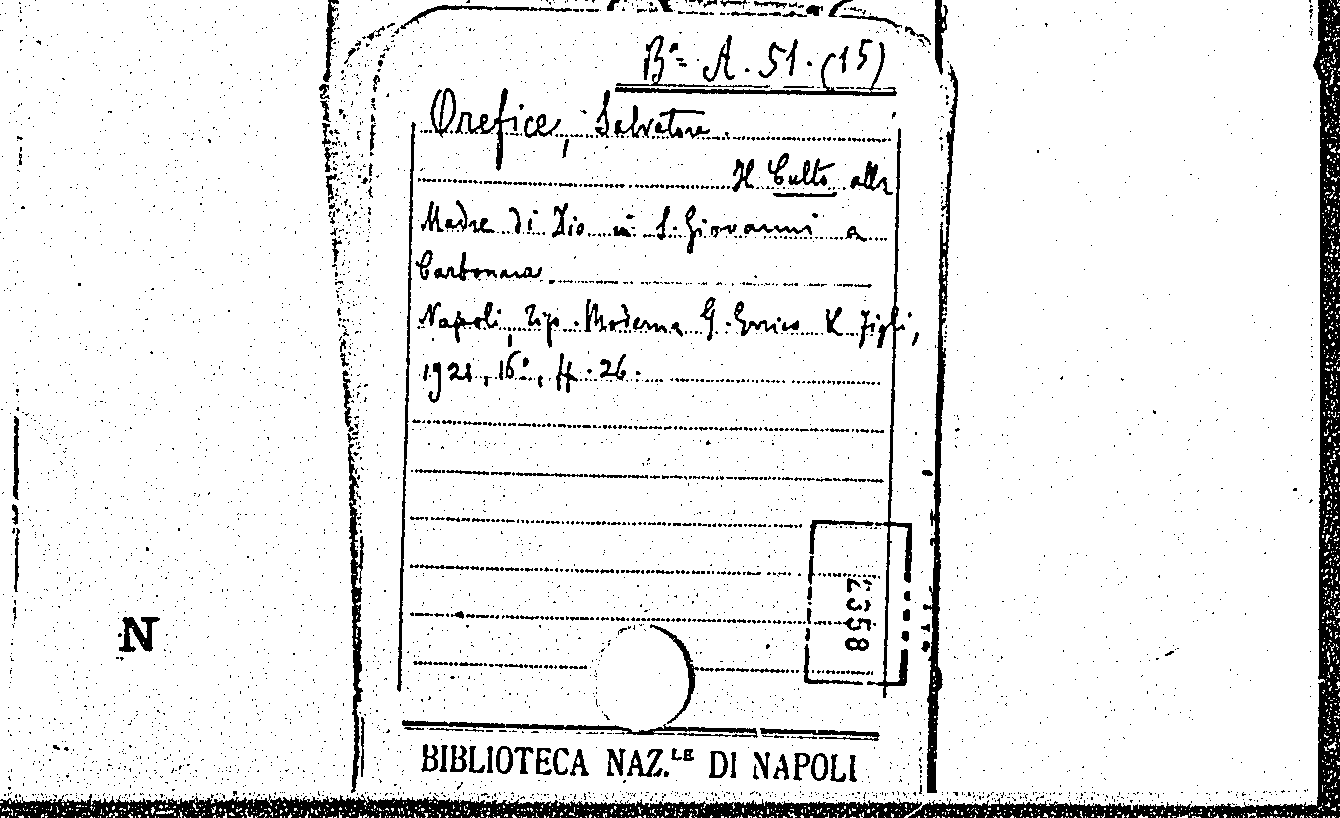 Bª= A. 51. (15)
Orefice, Salvatore.
Il Culto alla
Madre di Dio in S. Giovanni a
Carbonara.
Napoli, Tip. Moderna G. Errico & Figli,
1921, 16º, ff. 26.
2358
N
BIBLIOTECA NAZ.LE DI NAPOLI